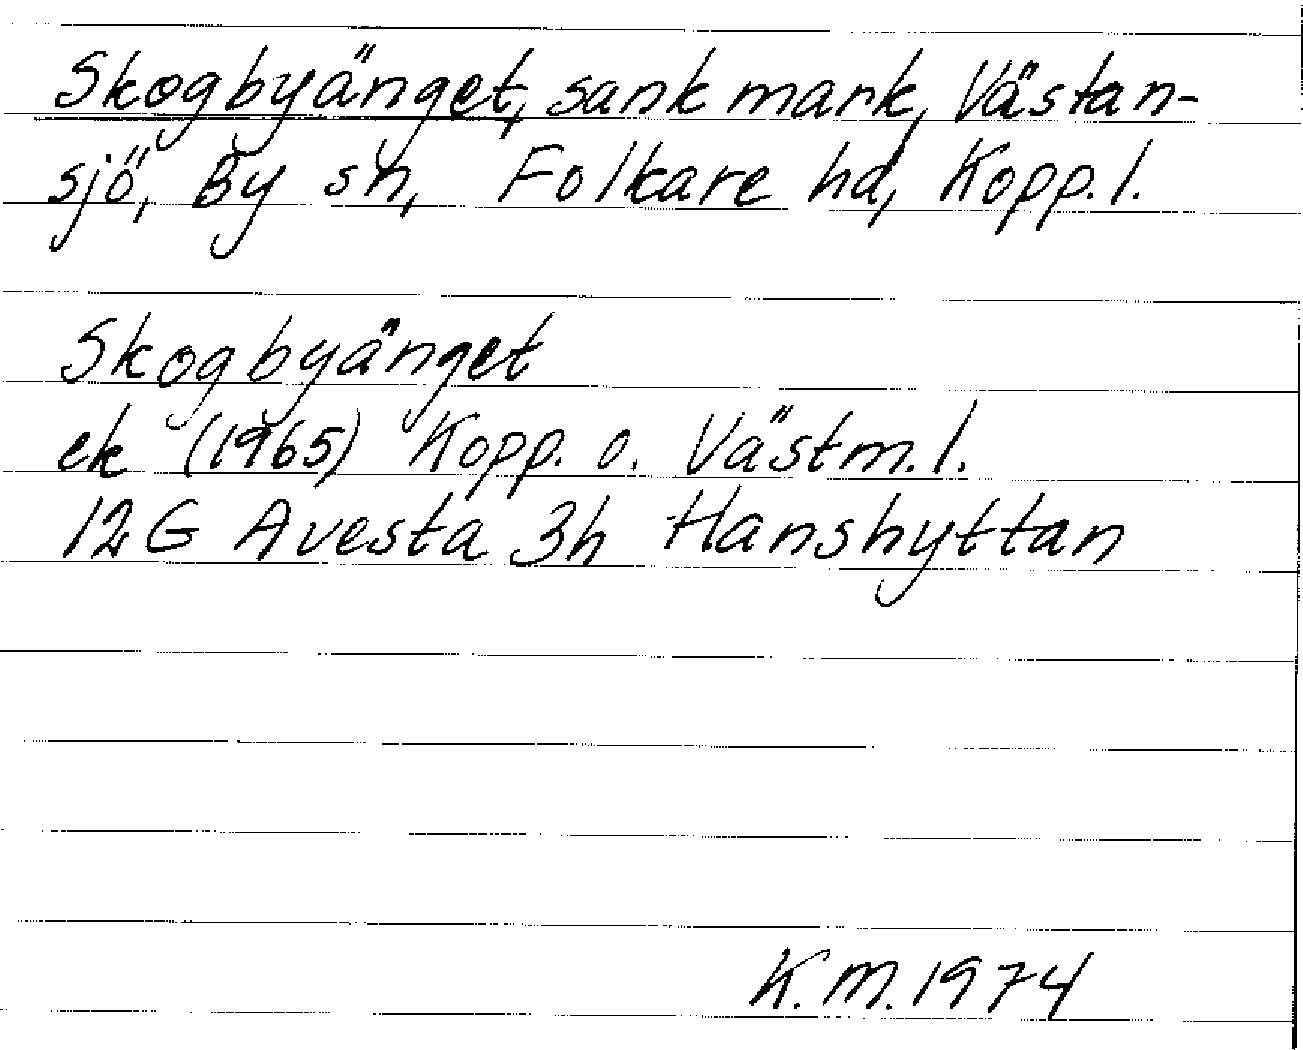 Skogbyänget, sank mark, Västan-
sjö, By sn, Folkare hd, Kopp. l.
Skogbyänget
ek (1965) Kopp. o. Västm. l.
12G Avesta 3h Hanshyttan
K.M. 1974